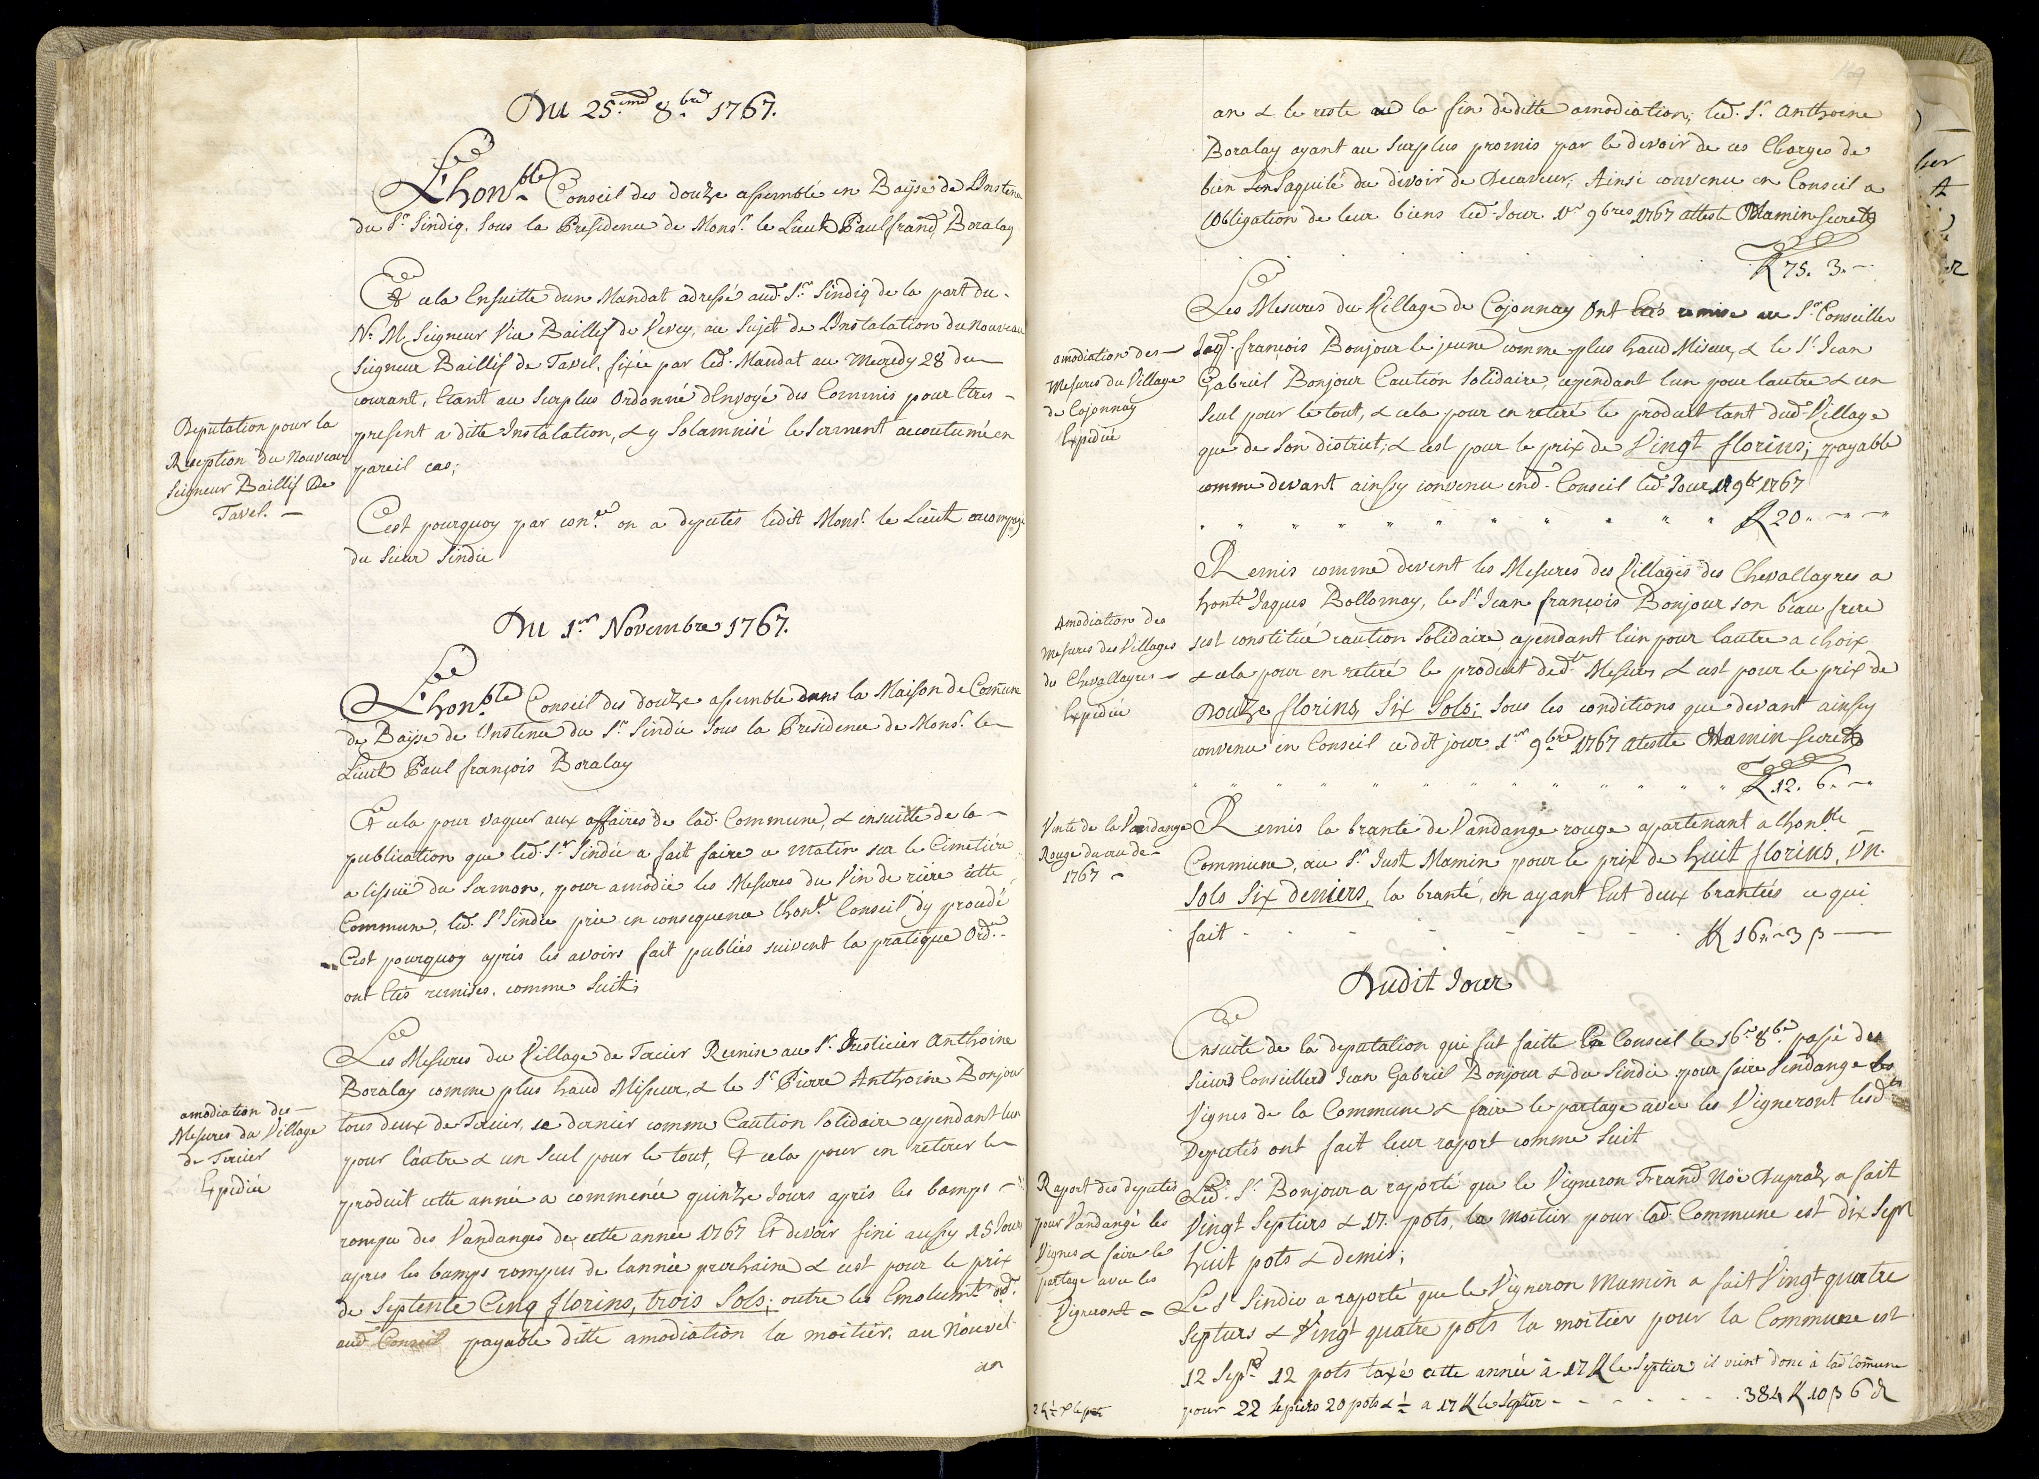 Du 25.eme 8.bre 1767.
L'hon.ble Conseil des douze assemblé en Baÿse de L'Instence
du S.r Sindiq. sous la Presidence de Mons.r le Lieut Paul frand Boralay
Et cela Ensuitte dun Mandat adressé aud. S.r Sindiq de la part du
N. M. Seigneur Vice Baillif de Vevey, au Sujet de L'Instalation du nouveau
Seigneur Baillif de Tavel, fixée par led. Mandat au Mecredy 28 du
courant, Etant au Surplus Ordonné dEnvoyé des Commis pour Etres
present a ditte Instalation, & y Solamnisé le Serment accoutumé en
pareil cas;
Deputation pour la
Reseption du Nouveau
Seigneur Baillif De
Tavel.
C'est pourquoy par con.ce on a deputés ledit Mons.r le Lieut accompagé
du Sieur Sindic
Du 1.er Novembre 1767.
L'hon.ble Conseil des douze assemble dans la Maison de Comune
de Baÿse de L'Instence du S.r Sindic Sous la Presidence de Mons.r le
Lieut Paul françois Boralay
Et cela pour vaquer aux affaires de lad. Commune, & ensuitte de la
publication que led. S.r Sindic a fait faire ce Matin sur le Cimetiére
a lissuë du Sermon, pour amodié les Mesures du Vin de riére cette
Commune, led. S.r Sindic prie en consequence lhon.le Conseil dy procedé
C'est pourquoy aprés les avoirs fait publiés suivent la pratique Ord.re
ont Etés remises, comme Suit;
Les Mesures du Village de Tercier Remise au S.r Justicier Anthoine
Boralay comme plus haud Misseur, & le S.r Pierre Anthoine Bonjour
tous deux de Tercier, ce dernier comme Caution Solidaire cependant lun
pour l'autre & un Seul pour le tout, Et cela pour en retirer le
produit cette année a commencée quinze Jours aprés les bamps
rompu des Vandanges de cette année 1767 Et devoir fini aussy 15 Jours
apres les bamps rompus de lannée prochaine & cest pour le prix
de Septente Cinq florins, trois Sols; outre les Emolum.ts ord.
aud. Conseil payable ditte amodiation la moitier, au Nouvel
an
amodiation des
Mesures du Village
de Tercier
Expediée
169
an & le reste a la fin de ditte amodiation; led. S.r Anthoine
Boralay ayant au Surplus promis par le devoir de ces Charges de
bien Sen Saquité du devoir de Receveur; Ainsi convenu en Conseil a
Obligation de leur biens led. Jour 1.er 9bres 1767 attesté Mamin Secret.
75. 3.
Les Mesures du Village de Cojonnay Ont Etés remise au S.r Conseiller
Jaq. françois Bonjour le jeune comme plus haud Miseur, & le S.r Jean
Gabriel Bonjour Caution Solidaire, cependant lun pour lautre & un
Seul pour le tout, & cela pour en retiré le produit tant dud. Village
que de Son district, & cest pour le prix de Vingt florins; payable
comme devant ainssy convenu end. Conseil led. Jour 1er 9bre 1767
20
amodiation des
Mesures du Village
de Cojonnay
Expediée
Remis comme devent les Mesures des Villages des Chevallayres a
honte Jaques Bollomay, le S.r Jean françois Bonjour son beau frere
sest constitué caution Solidaire, cependant lun pour lautre a choix
& cela pour en retiré le produit ded. Mesures & cest pour le prix de
Douze florins, Six Sols; Sous les conditions que devant ainssy
convenu en Conseil ce dit jour 1.er 9.bre 1767 ateste Mamin Secret
12. 6.
Amodiation des
Mesures des Villages
de Chevallayres
Expediée
Remis la brante de Vandange rouge apartenant a lhon.ble
Commune, au S.r Just Mamin pour le prix de huit florins, Un
Sols Six deniers, la branté, en ayant Eut deux brantées ce qui
fait 16 3 β
Vente de la Vandange
Rouge du cru de
1767
Dudit Jour
Ensuite de la deputation qui fut faitte En Conseil le 16.e 8.bre passé des
Sieurs Conseillers Jean Gabriel Bonjour & du Sindic pour faire Vendange les
Vignes de la Commune & faire le partage avec les Vigneront lesd.
Deputés ont fait leur raport comme Suit
Led. S.r Bonjour a raporté que le Vigneron Frand Noé Dupraz a fait
Vingt Septiers & 17. pots, la moitier pour lad. Commune est dix Sept
huit pots & demis;
Le S.r Sindic a raporté que le Vigneron Mamin a fait Vingt quatre
Septiers & Vingt quatre pots la moitier pour la Commune est
12 Sept.rs 12 pots taxé cette année à 17 le Septier il vient donc à lad Comune
pour 22 septiers 20 pots & ½ a 17 le Septier 384 10 β 6
Raport des deputés
pour Vandangé les
Vignes & faire le
partage avec les
Vigneront